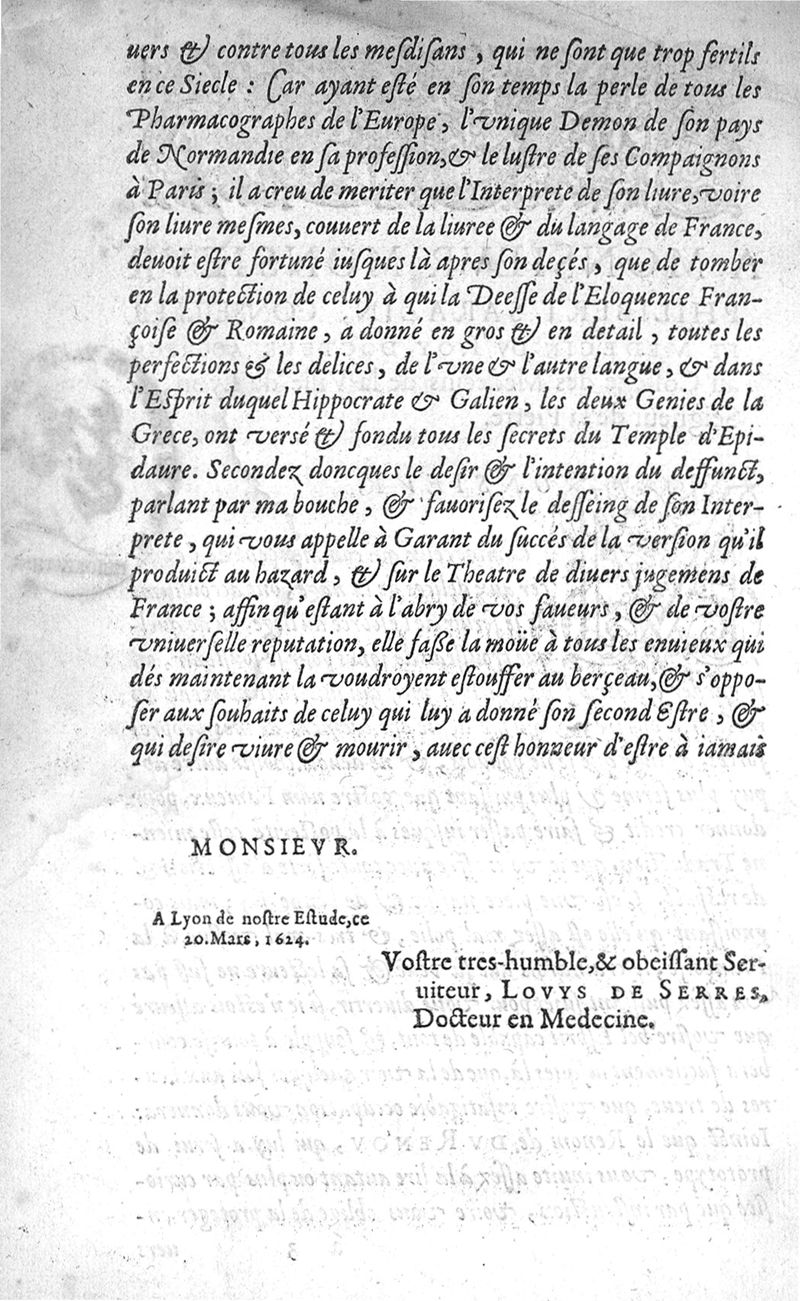 uers & contre tous les mesdisans, qui ne ſont que trop fertils
en ce Siecle : Car ayant eſté en ſon temps la perle de tous les
Pharmacographes de l'Europe, l'vnique Demon de ſon pays
de Normandie en ſa profeſſion, & le luſtre de ſes Compaignons
à Paris ; il a creu de meriter que l'Interprete de ſon liure, voire
ſon liure meſmes, couuert de la liuree & du langage de France,
deuoit eſtre fortuné iuſques là apres ſon deçés, que de tomber
en la protection de celuy à qui la Deeſſe de l'Eloquence Fran-
çoiſe & Romaine, a donné en gros & en detail, toutes les
perfections & les delices, de l'vne & l'autre langue, & dans
l'Eſprit duquel Hippocrate & Galien, les deux Genies de la
Grece, ont verſé & fondu tous les ſecrets du Temple d'Epi-
daure. Secondez doncques le deſir & l'intention du deffunct,
parlant par ma bouche, & fauoriſez le deſſeing de ſon Inter-
prete, qui vous appelle à Garant du ſuccés de la verſion qu'il
produict au hazard, & ſur le Theatre de diuers jugemens de
France ; affin qu'eſtant à l'abry de vos faueurs, & de voſtre
vniuerſelle reputation, elle faße la moüe à tous les enuieux qui
dés maintenant la voudroyent eſtouffer au berçeau, & s'oppo-
ſer aux ſouhaits de celuy qui luy a donné ſon ſecond Eſtre, &
qui deſire viure & mourir, auec ceſt honneur d'eſtre à iamais
MONSIEVR.
A Lyon de noſtre Eſtude, ce
20. Mars, 1624.
Voſtre tres-humble, & obeiſſant Ser-
uiteur, LOVYS DE SERRES,
Docteur en Medecine.